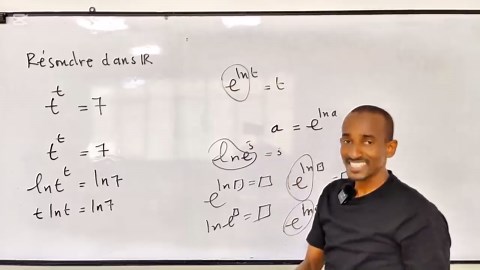 Résoudre dans IR
t^t = 7
t^t = 7
ln t^t = ln 7
t ln t = ln 7
e^{ln t} = t
a = e^{ln a}
ln e^s = s
e^{ln □} = □
ln e^□ = □
e^{ln □} = □